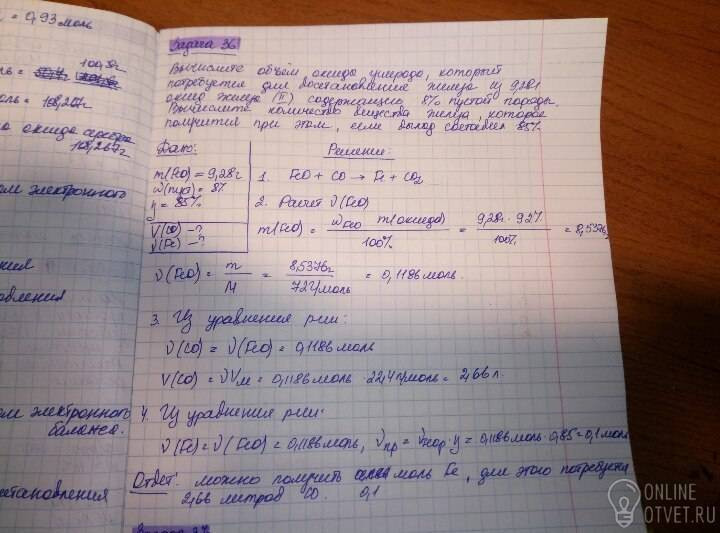 = 0,93 моль
109,3г
моль = 108,267г
108,267г
электронного
новления
электронного
баланса.
становления
Задача 36
Вычислите объём оксида углерода, который
потребуется для восстановления железа из 9,28г
оксид железа (II) содержащую 8% пустой породы.
Вычислите количество вещества железа, которое
получится при этом, если выход составил 85%
Дано:
m(FeO) = 9,28г
ω(пуст) = 8%
η = 85%
V(CO) - ?
ν(Fe) - ?
Решение:
1. FeO + CO → Fe + CO2
2. Расчет ν(FeO)
m(FeO) = ωFeO · m(оксида) / 100% = 9,28г · 92% / 100% = 8,5376г
ν(FeO) = m / M = 8,5376г / 72г/моль = 0,1186 моль.
3. Из уравнения р-ии:
ν(CO) = ν(FeO) = 0,1186 моль
V(CO) = νVм = 0,1186 моль · 22,4 л/моль = 2,66 л.
4. Из уравнения р-ии:
ν(Fe) = ν(FeO) = 0,1186 моль, νпр = νтеор · η = 0,1186 моль · 0,85 = 0,1 моль
Ответ: можно получить 0,1 моль Fe, для этого потребуется
2,66 литров CO.
ONLINE
OTVET.RU